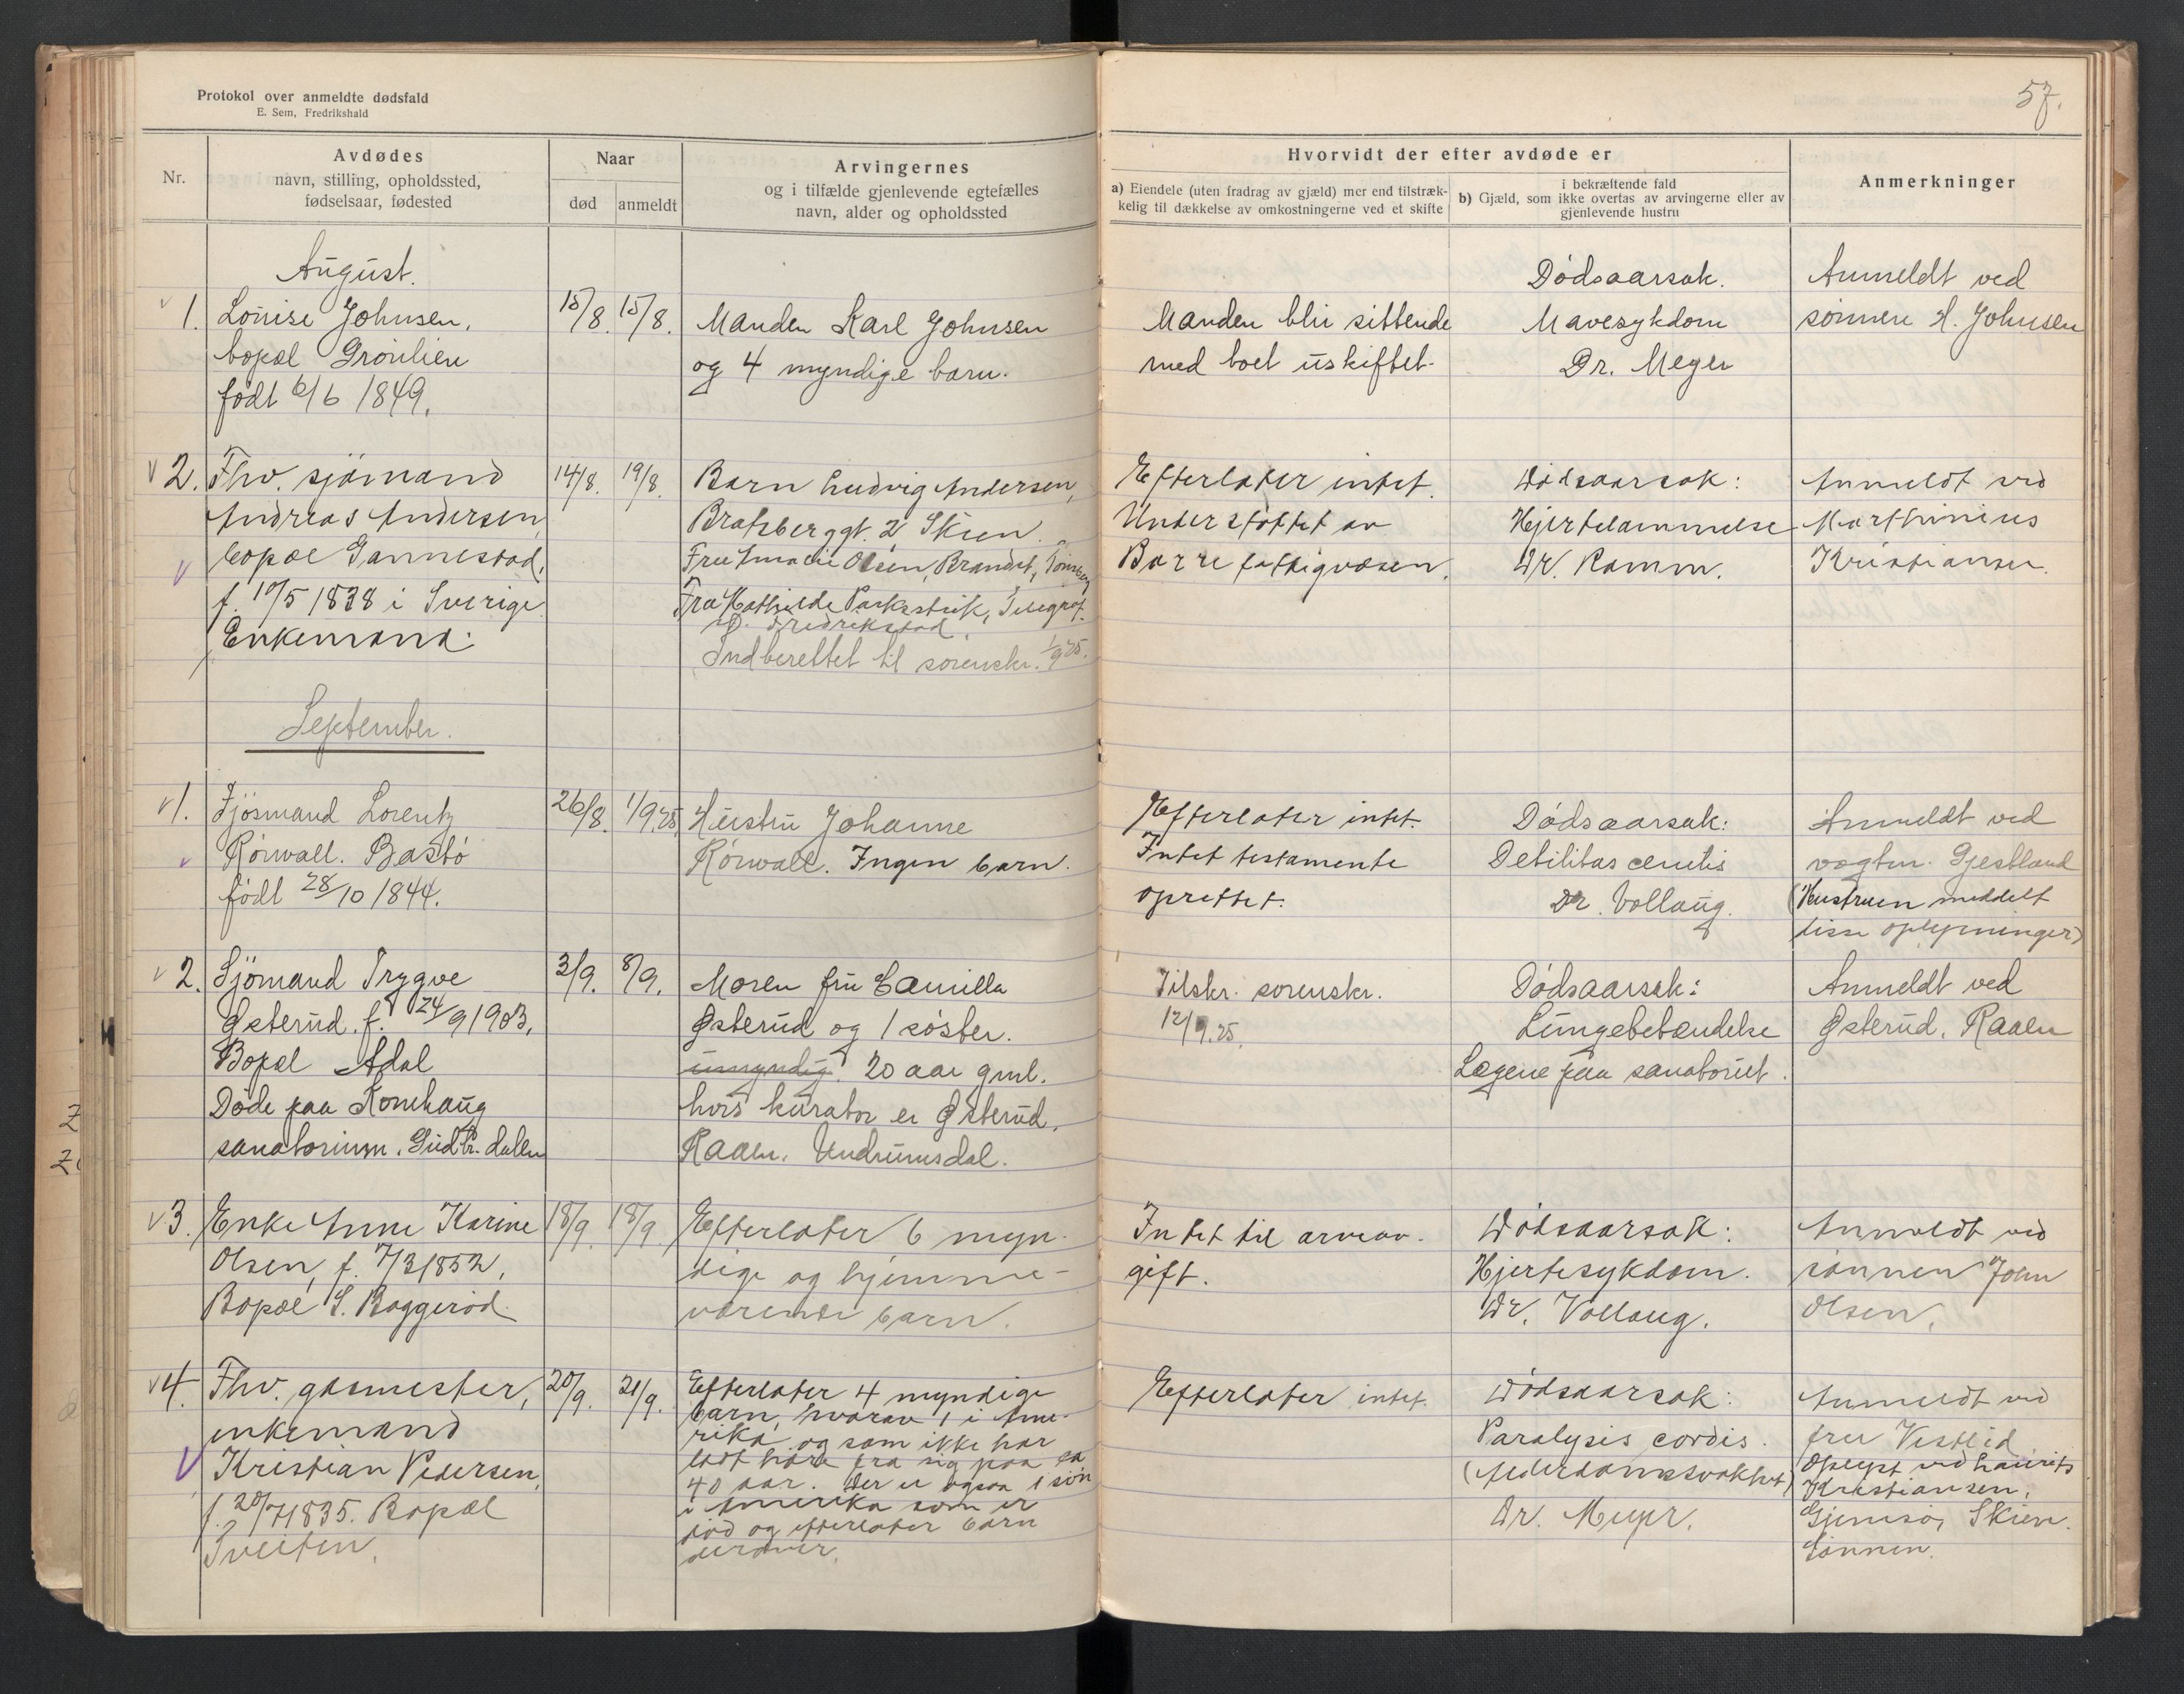 Protokol over anmeldte dødsfald
E. Sem, Fredrikshald
57.
Nr.
Avdødes
navn, stilling, opholdssted,
fødselsaar, fødested
Naar
død
anmeldt
Arvingernes
og i tilfælde gjenlevende egtefælles
navn, alder og opholdssted
Hvorvidt der efter avdøde er
a) Eiendele (uten fradrag av gjæld) mer end tilstræk-
kelig til dækkelse av omkostningerne ved et skifte
i bekræftende fald
b) Gjæld, som ikke overtas av arvingerne eller av
gjenlevende hustru
Anmerkninger
August.
1. Louise Johnsen,
bopæl Grönlien
födt 6/6 1849.
15/8. 15/8.
Manden Karl Johnsen
og 4 myndige barn.
Manden blir sittende
med boet uskiftet.
Dödsaarsak.
Mavesykdom
Dr. Meyer
Anmeldt ved
sönnen H. Johnsen
2. Fhv. sjömand
Andreas Andersen,
bopæl Gannestad,
f. 10/5 1838 i Sverige
Enkemand.
14/8. 19/8.
Barn Ludvig Andersen,
Bratsberggt. 2 Skien.
Fru Amalie Olsen, Brandst, Tönsberg
Fra Mathilde Parkastrik, Telegraf-
Fredrikstad.
Indberettet til sorenskr. 1/9 25.
Efterlater intet.
Understöttet av
Borre fattigvæsen.
Dödsaarsak:
Hjertelammelse
Dr. Ramm.
Anmeldt ved
Marthinius
Kristiansen.
September.
1. Sjömand Lorentz
Rörwall. Bastö
födt 28/10 1844.
26/8. 1/9.25
Hustru Johanne
Rörwall. Ingen barn.
Efterlater intet.
Intet testamente
oprettet.
Dödsaarsak:
Debilitas cenilis
Dr. Vollaug.
Anmeldt ved
vagtm. Gjestland
(Hustruen meddelt
disse oplysninger)
2. Sjömand Trygve
Østerud. f. 24/9 1903,
Bopæl Adal
Döde paa Kornhaug
sanatorium. Gudbr. dalen
3/9. 8/9.
Moren fru Camilla
Østerud og 1 söster.
umyndig. 20 aar gml.
hvis kurator er Østerud,
Raaen. Undrumsdal.
Tilskr. sorenskr.
12/9.25.
Dödsaarsak:
Lungebetændelse
Lægene paa sanatoriet.
Anmeldt ved
Østerud, Raaen
3. Enke Anne Karine
Olsen, f. 7/3 1852,
Bopæl S. Baggeröd.
18/9. 18/9.
Efterlater 6 myn-
dige og hjemme-
værende barn.
Intet til arveav-
gift.
Dödsaarsak:
Hjertesykdom.
Dr. Vollaug.
Anmeldt ved
sönnen John
Olsen.
4. Fhv. gasmester,
enkemand
Kristian Pedersen,
f. 20/7 1835. Bopæl
Tveiten.
20/9. 21/9.
Efterlater 4 myndige
barn, hvorav 1 i Ame-
rika og som ikke har
latt höre fra sig paa ca
40 aar. Der er ogsaa 1 sön
i Amerika som er
död og efterlater barn
derover.
Efterlater intet.
Dödsaarsak:
Paralysis cordis.
(Alderdomssvakhet)
Dr. Meyer.
Anmeldt ved
fru Vestlid
Oplyst ved Laurits
Kristiansen,
Gjemsö, Skien.
Sönnen.